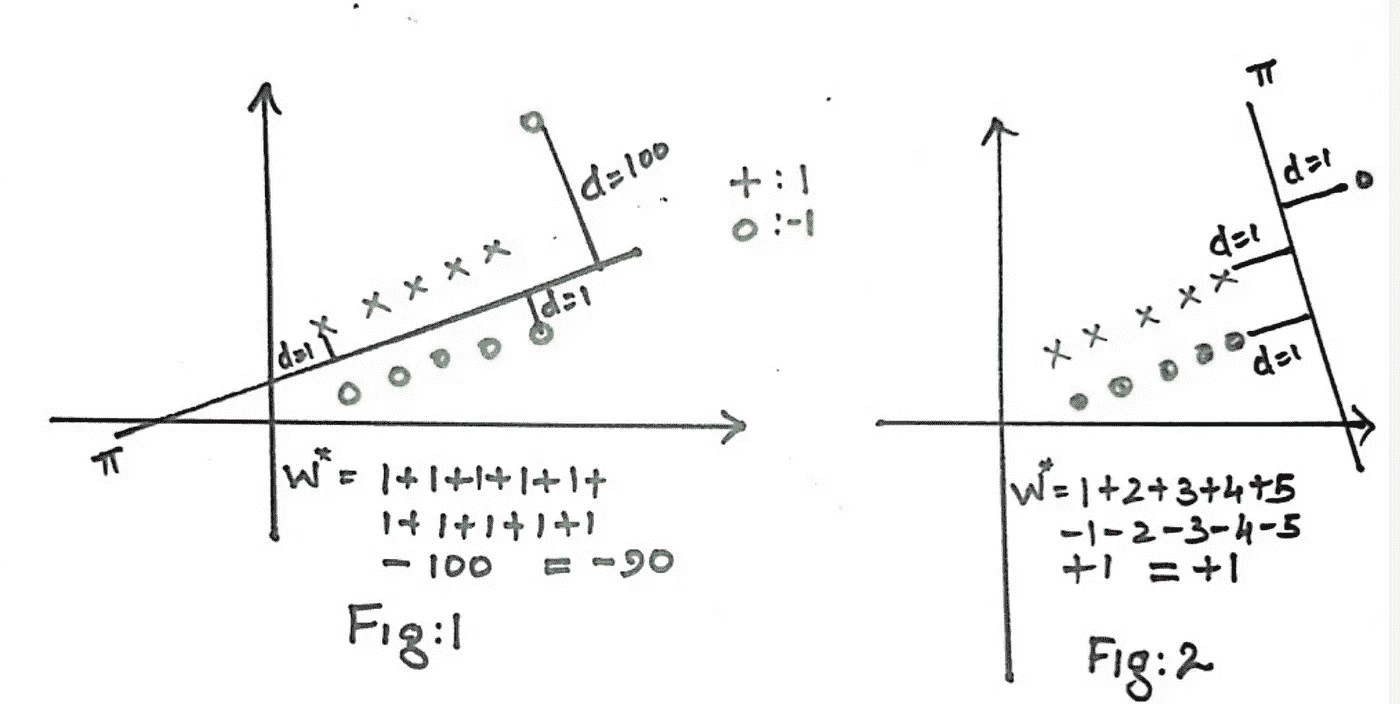 d=100
+ : 1
o : -1
d=1
d=1
π
W* = 1+1+1+1+1+
1+1+1+1+1
- 100 = -90
Fig:1
π
d=1
d=1
d=1
W* = 1+2+3+4+5
-1-2-3-4-5
+1 = +1
Fig:2